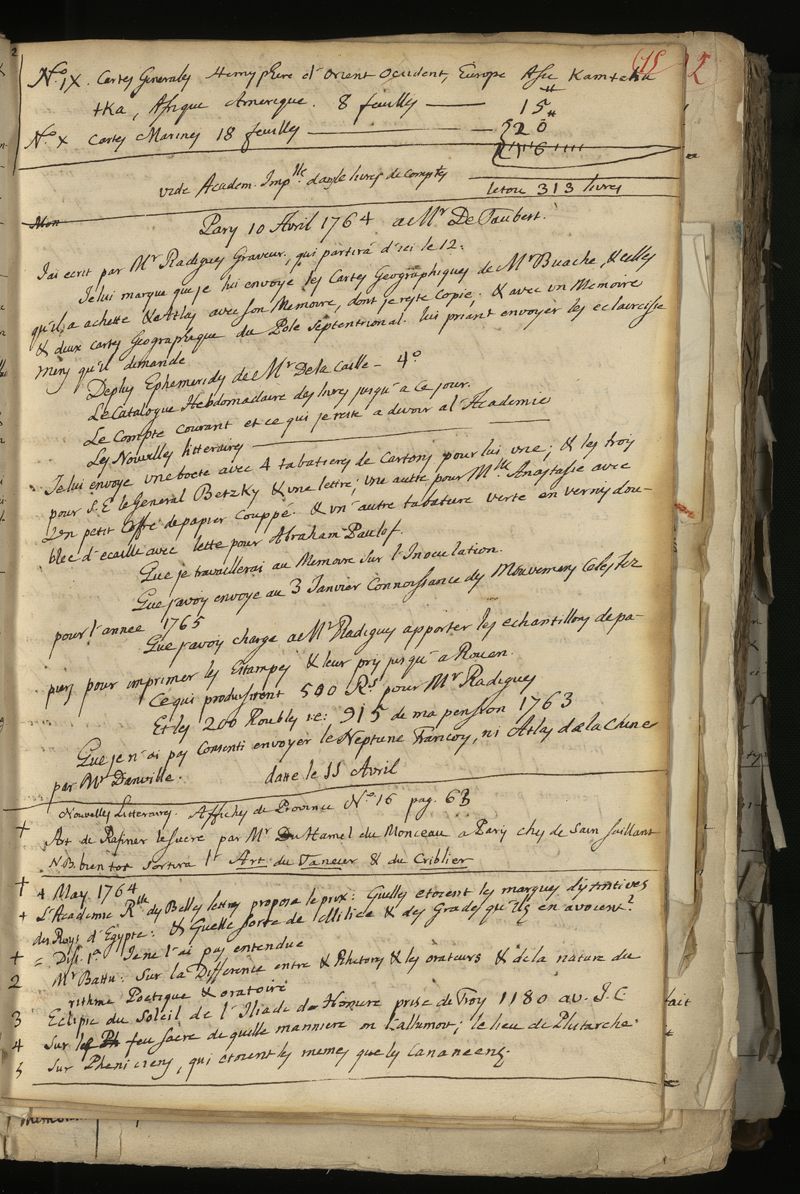 (15 2
N.o IX. Cartes Generales Hemysphere d'Orient Occident, Europe Asie Kamtcha
tka, Afrique Amerique. 8 feuilles — 15 ll
N.o X Cartes Marines 18 feuilles — 20 ll
vide Academ. Imp.lle dans le livres de comptes le tout 313 livres
Mon
Pary 10 Avril 1764 a Mr De Taubert.
J'ai ecrit par Mr Radigues Graveur, qui partira d'ici le 12.
Je lui marque que je lui envoye les Cartes Geographiques de Mr Buache, & celles
qu'il a achetté & Atlas avec son Memoire, dont je reste Copie. & avec un Memoire
& deux cartes Geographique du Pole Septentrional. lui priant envoyer les eclaircisse
mens qu'il demande
De plus Ephemerides de Mr De la Caille - 4.o
Le Catalogue Hebdomadaire des livres jusqu'a ce jour.
Le Compte courant et ce qui je reste a devoir a l'Academie
Les Nouvelles litteraires
Je lui envoye une boete avec 4 tabatieres de Cartons pour lui une; & les trois
pour S. E. le General Betzky & une lettre; une autre pour Mlle Anastasie avec
un petit Coffre de papier Couppé. & un autre tabatiere verte en vernis dou-
blee d'ecaille avec lette pour Abraham Paulof.
Que je travaillerai au Memoire sur l'Inoculation.
Que j'avoy envoye au 3 Janvier Connoissance des Mouvemens Celestez
pour l'annee 1765
Que j'avoy chargé a Mr Radigues apporter les echantillons de pa-
piers pour imprimer les Estampes & leur prix jusqu'a Rouen.
Ce qui produisirent 500 Rs pour Mr Radigues
Et les 200 Roubles ie: 915 de ma pension 1763
Que je n'ai pas Consenti envoyer le Neptune Francois, ni Atlas de la Chine
par Mr Danville. datte le 11 Avril
Nouvelles Litteraires. Affiches de Province N.o 16 pag. 63
+ Art de Rafiner le sucre par Mr Du Hamel du Monceau a Paris ches de Sain faillant
NB. bien tot sortira l'Art du Taneur & du Criblier
+ 4 May 1764
+ L'Academie R.lle des Belles lettres propose le prix: Quelles etoient les marques distintives
des Roys d'Egypte: & Quelle sorte de Milice & des Grades qu'ils en avoient?
+ = Diss. 1a Je ne l'ai pas entendue
2 Mr Battu: Sur la Difference entre & Rhetors & les orateurs & de la nature du
rithme Poetique & oratoire
3 Eclipse du Soleil de l'Iliade de Homere prise de Troy 1180 av. J. C
4 Sur le feu sacre de quelle manniere on l'allumoit; le lieu de Plutarche
5 Sur Pheniciens, qui etoient les memes que les Cananeens.